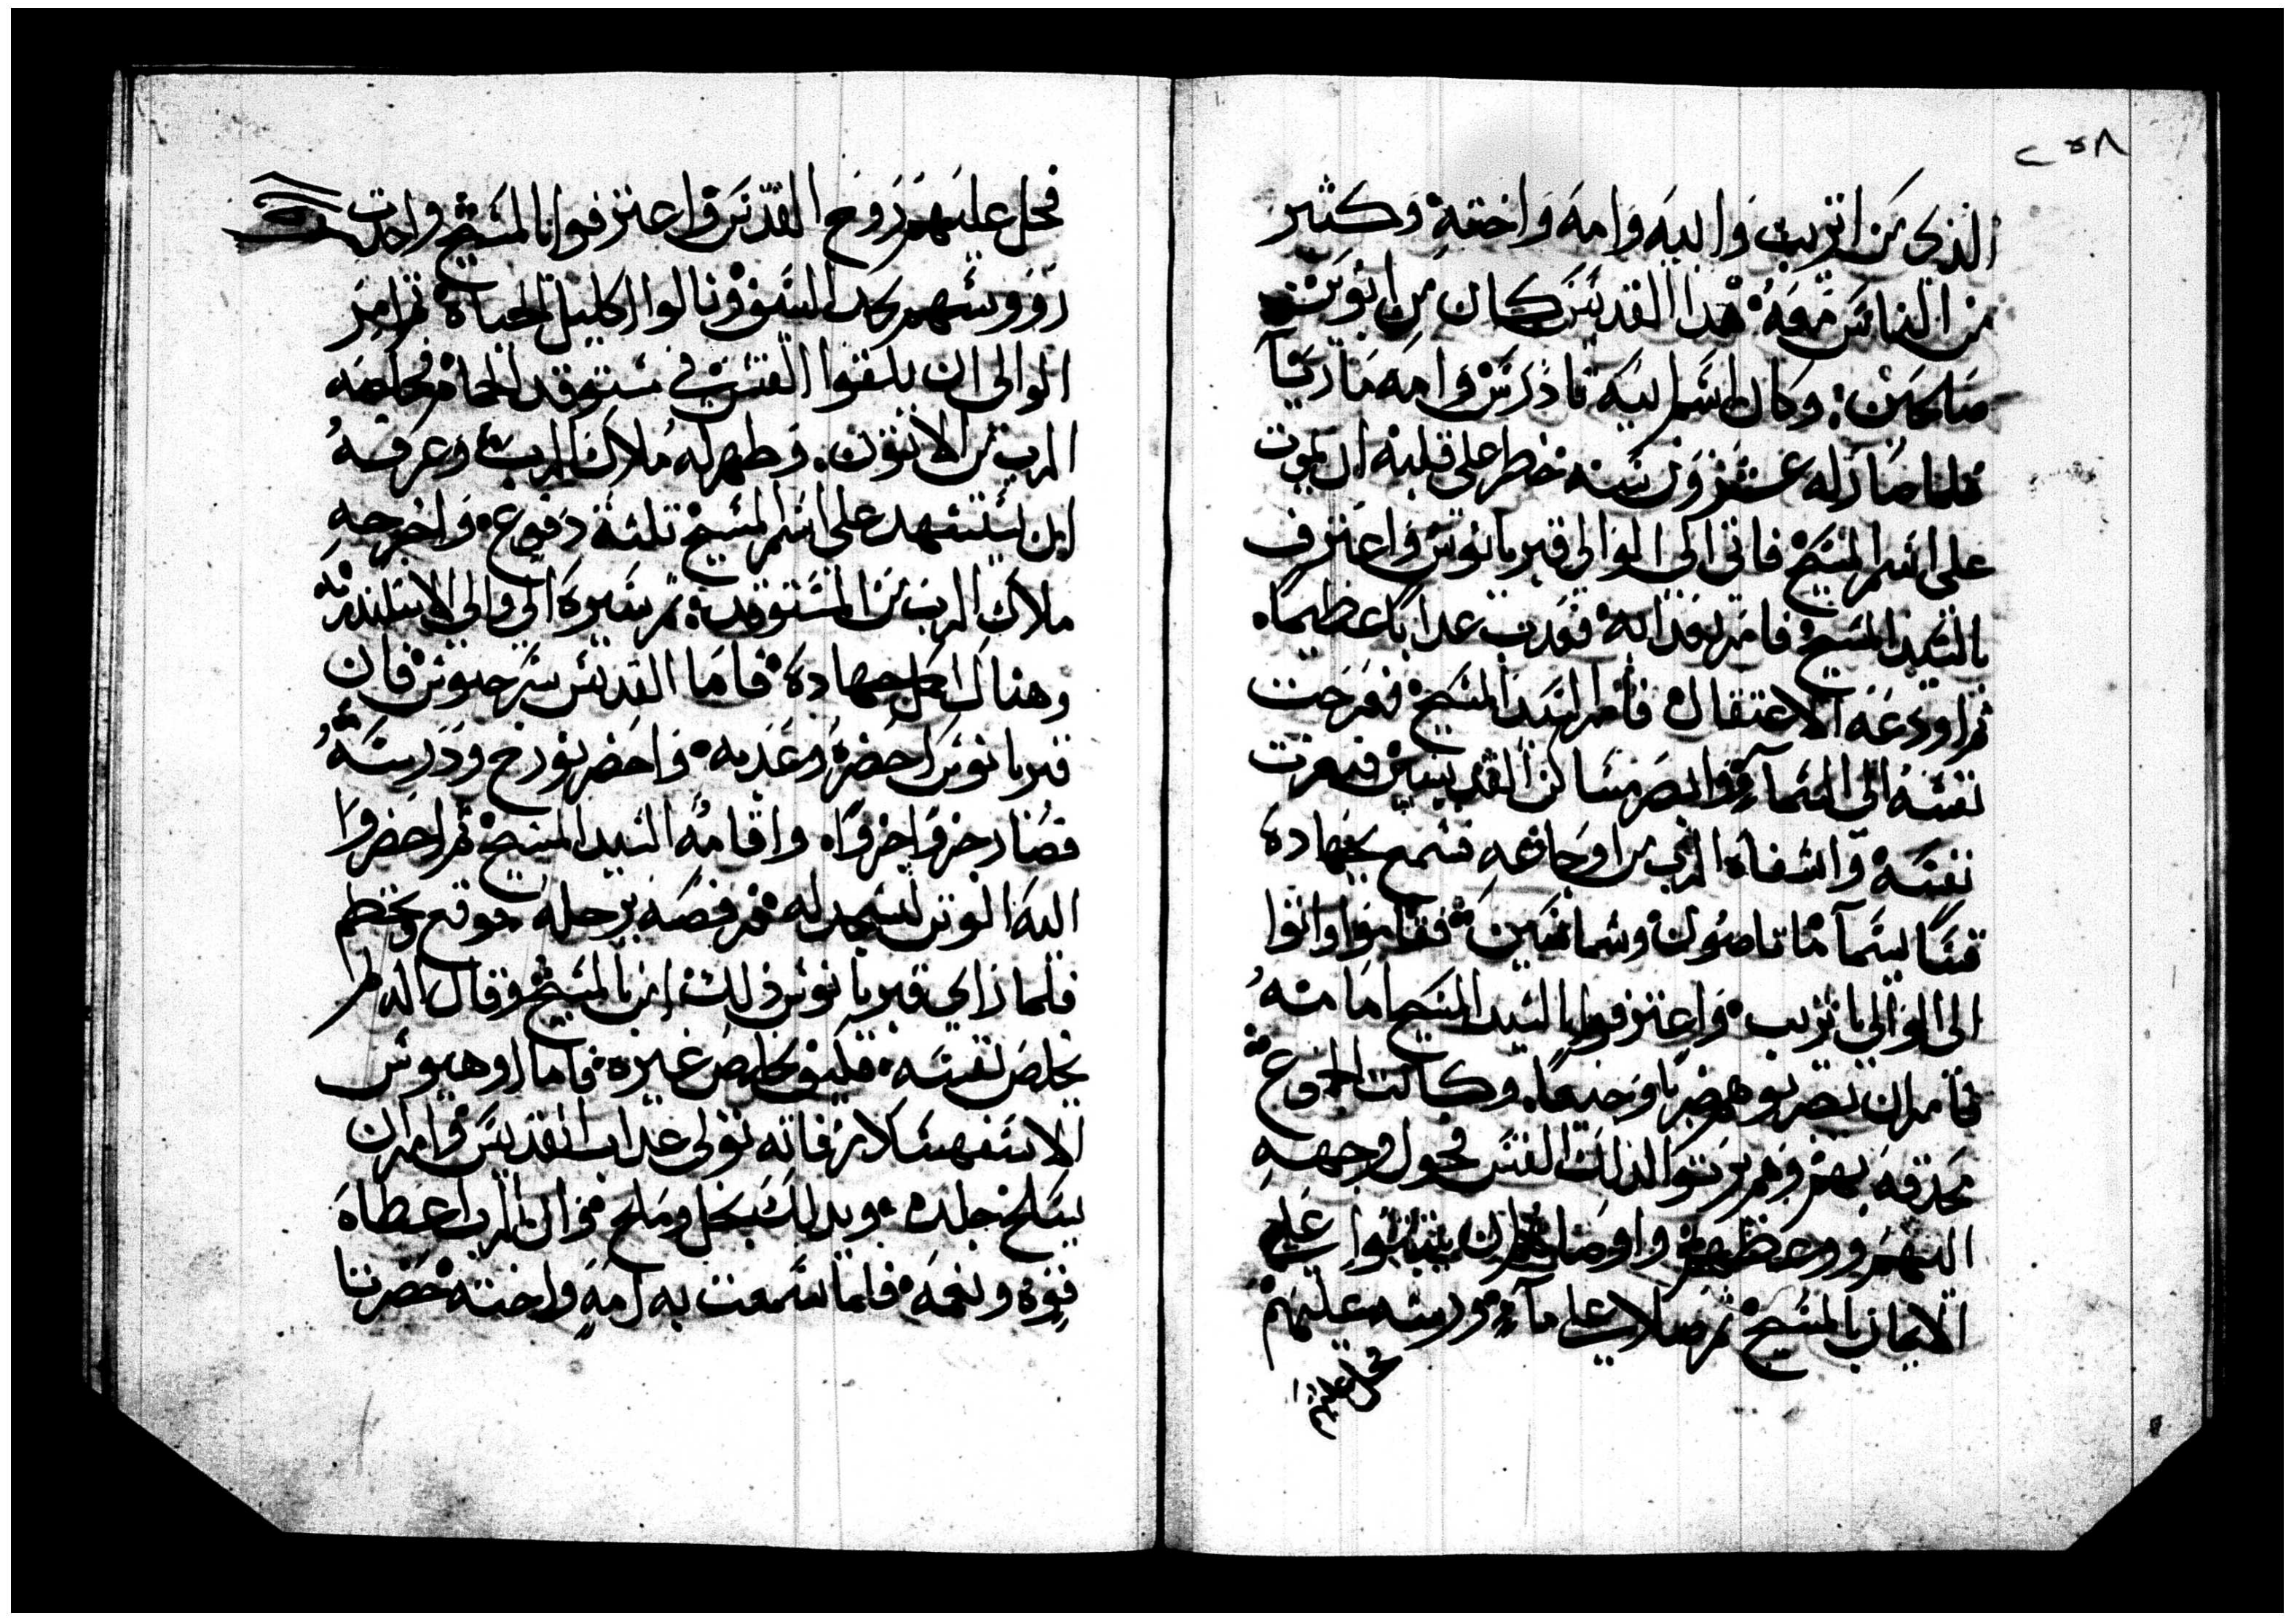 ٢٥٨
الذي من اتريب وابيه وامه واخته وكثير
من الناس معه هدا القديس كان من ابوين
صالحين وكان اسم ابيه تادرس وامه ماريا
فلما صار له عشرون سنه خطر على قلبه ان يموت
على اسم المسيح فاتى الى الوالي قبريانوس واعترف
بالسيد المسيح فامر بعدابه فعدب عدابا عظيما
ثم اودعه الاعتقال فامر السيد المسيح فعرجت
نفسه الى السماء وابصر مساكن القديسين فتعزت
نفسه واشفاه الرب من اوجاعه فسمع بجهاده
قسا يسما مناصون وشمامسين فقاموا واتوا
الى الوالي باتريب واعترفوا بالسيد المسيح امامه
فامر ان يضربوهم ضربا وجيعا وكانت الجموع
محدقه بهم وهم يرتوا لذلك القس فحول وجهه
اليهم ووعظهم واوصاهم ان يثبتوا على
الايمان بالمسيح ثم صلا على ماء ورشه عليهم
فحل عليهم
فحل عليهم روح القدس واعترفوا بالمسيح واخدت
رووسهم بحد السيف ونالوا اكليل الحياه ثم امر
الوالي ان يلقوا القس في مستوقد الحمام فخلصه
الرب من الاتون وظهر له ملاك الرب وعرفه
ان يستشهد على اسم المسيح تلثة دفوع واخرجه
ملاك الرب من المستوقد ثم سيره الى والي الاسكندريه
وهناك اكمل جهاده فاما القديس سرجيوس فان
قبريانوس احضره وعدبه واحضر نورج ودرسه
فصار جزوا جزوا واقامه السيد المسيح ثم احضروا
اليه الوتن ليسجد له فرفصه برجله فوقع وتحطم
فلما راى قبريانوس ذلك امن بالمسيح وقال الدي لم
يخلص نفسه فكيف يخلص غيره فاما اوهيوس
الاسفهسلار فانه تولى عداب القديس وامر ان
يسلخ جلده ويدلك بخل وملح وان الرب اعطاه
قوه ونعمه فلما سمعت به امه واخته حضرتا